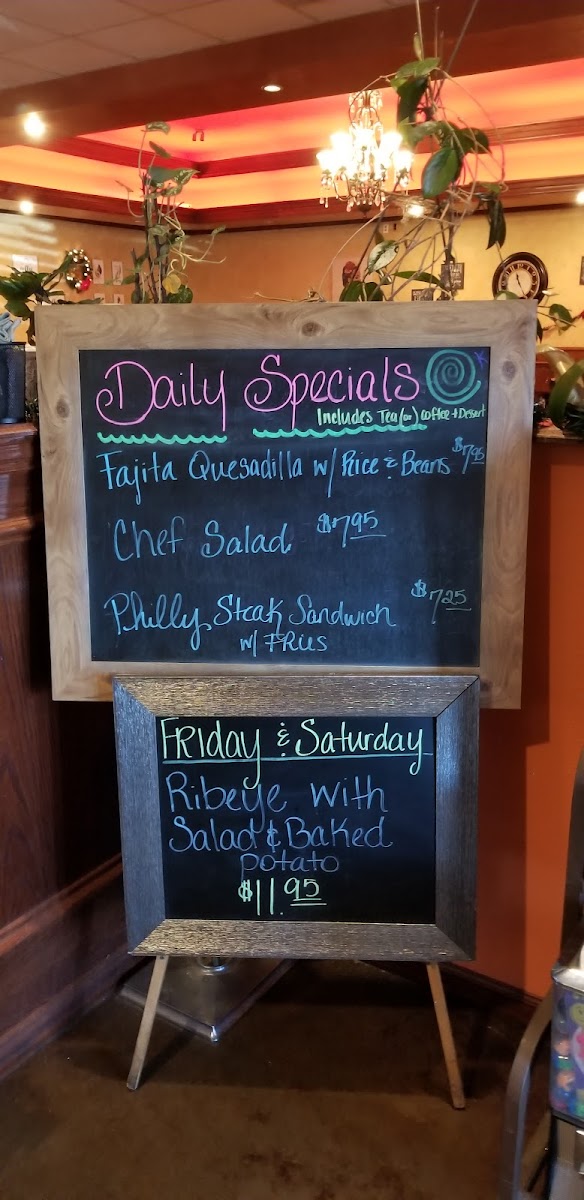 Daily Specials
Includes Tea (or) Coffee + Dessert
Fajita Quesadilla w/ Rice & Beans $7.95
Chef Salad $7.95
Philly Steak Sandwich $7.25
w/ FRies
FRiday & Saturday
Ribeye with
Salad & Baked
potato
$11.95